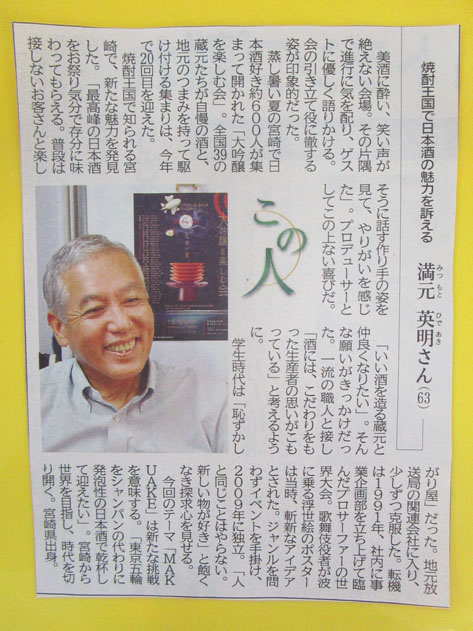 焼酎王国で日本酒の魅力を訴える
満元 英明さん(63)
みつもと ひであき
この人
美酒に酔い、笑い声が
絶えない会場。その片隅
で進行に気を配り、ゲス
トに優しく語りかける。
会の引き立て役に徹する
姿が印象的だった。
蒸し暑い夏の宮崎で日
本酒好き約600人が集
まって開かれた「大吟醸
を楽しむ会」。全国39の
蔵元たちが自慢の酒と、
地元のつまみを持って駆
け付ける集まりは、今年
で20回目を迎えた。
焼酎王国で知られる宮
崎で、新たな魅力を発見
した。「最高峰の日本酒
をお祭り気分で存分に味
わってもらえる。普段は
接しないお客さんと楽し
そうに話す作り手の姿を
見て、やりがいを感じ
た」。プロデューサーと
してこの上ない喜びだ。
「いい酒を造る蔵元と
仲良くなりたい」。そん
な願いがきっかけだっ
た。一流の職人と接し
「酒には、こだわりをも
った生産者の思いがこも
っている」と考えるよう
に。
学生時代は「恥ずかし
がり屋」だった。地元放
送局の関連会社に入り、
少しずつ克服した。転機
は1991年、社内に事
業企画部を立ち上げて臨
んだプロサーファーの世
界大会。歌舞伎役者が波
に乗る浮世絵のポスター
は当時、斬新なアイデア
とされた。ジャンルを問
わずイベントを手掛け、
2009年に独立。「人
と同じことはやらない。
新しい物が好き」と飽く
なき探求心を見せる。
今回のテーマ「MAK
UAKE」は新たな挑戦
を意味する。「東京五輪
をシャンパンの代わりに
発泡性の日本酒で乾杯し
て迎えたい」。宮崎から
世界を目指し、時代を切
り開く。宮崎県出身。
大吟醸を楽しむ会